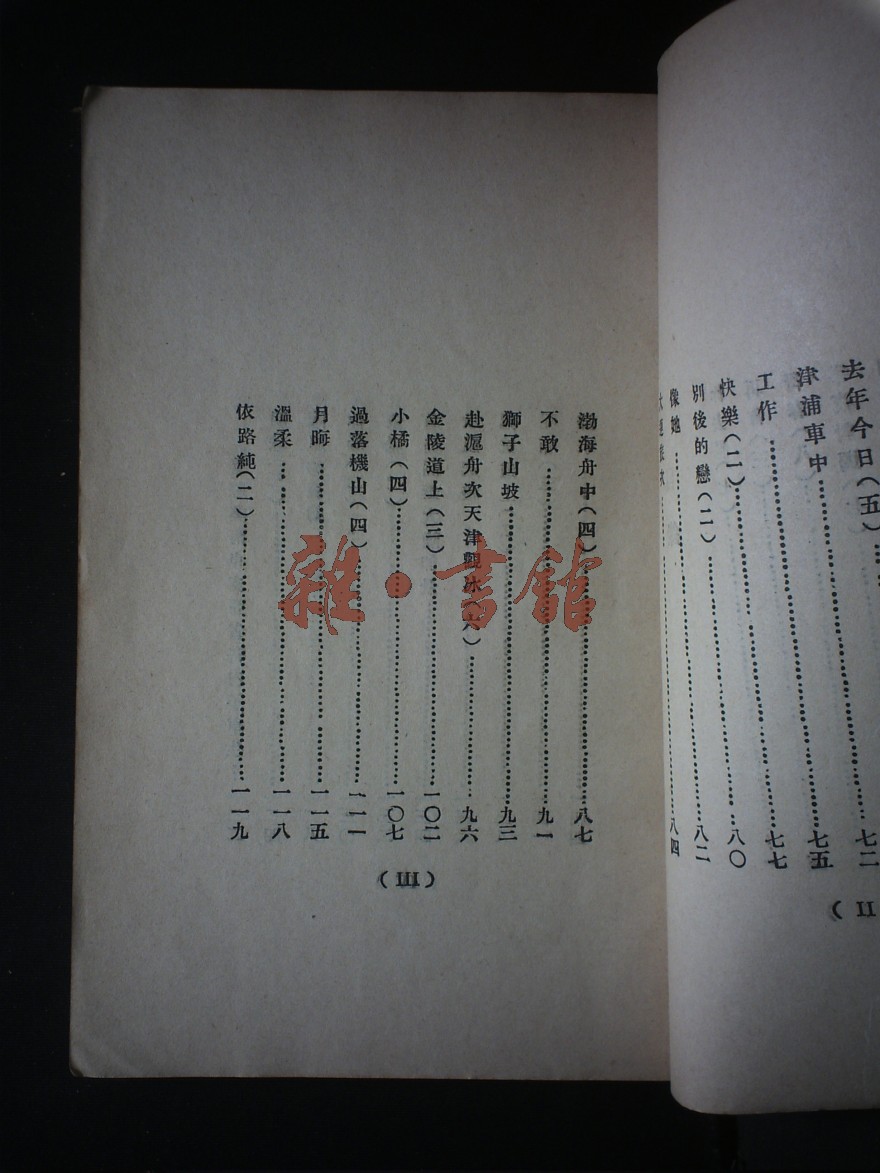 去年今日(五)……七二
津浦車中……七五
工作……七七
快樂(二)……八〇
別後的戀(二)……八二
像她……八四
(II
渤海舟中(四)……八七
不敢……九一
獅子山坡……九三
赴滬舟次天津觀冰(六)……九六
金陵道上(三)……一〇二
小橘(四)……一〇七
過落機山(四)……一一一
月晦……一一五
溫柔……一一八
依路純(二)……一一九
(III)
雜·書館